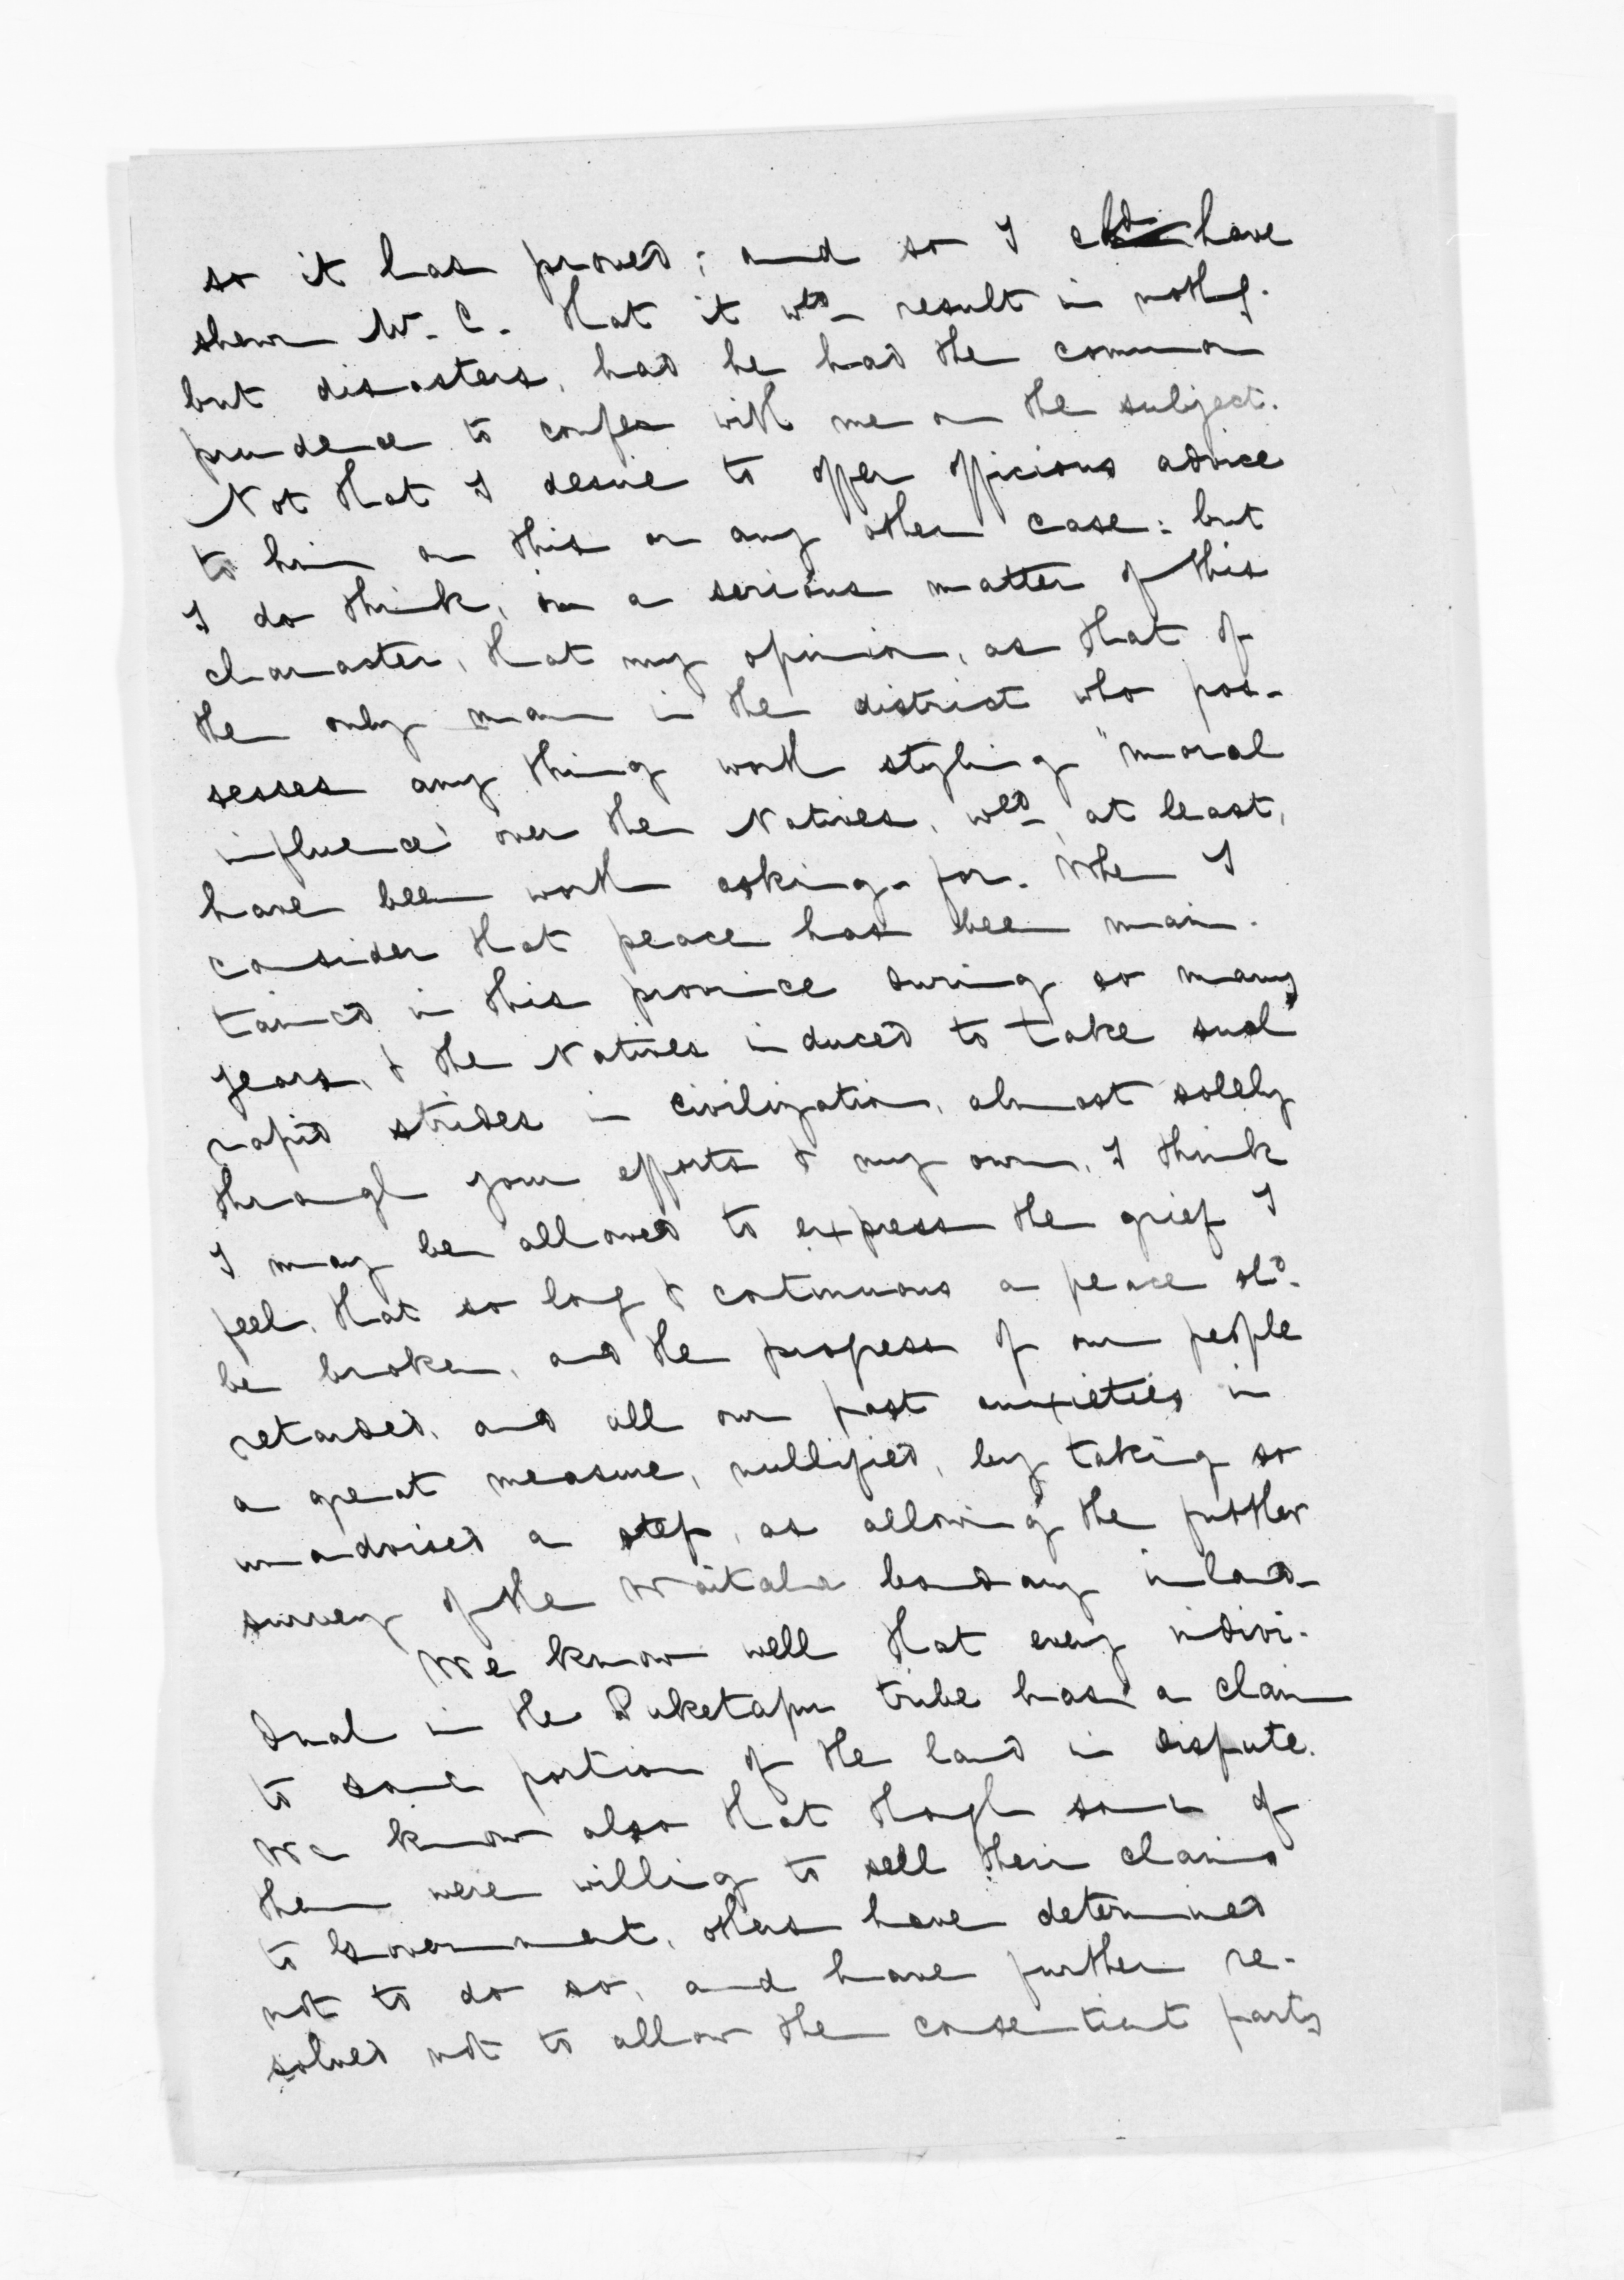 so it has proved; and so I cld have
shewn Mr. C. that it wld result in nothg.
but disasters, had he had the common
prudence to confer with me on the subject.
Not that I desire to offer officious advice
to him on this or any other case: but
I do think, in a serious matter of this
character, that my opinion, as that of
the only man in the district who pos-
sesses any thing worth styling "moral
influence" over the Natives, wld, at least,
have been worth asking-for. When I
consider that peace has been main-
tained in this province during so many
years, & the Natives induced to take such
rapid strides in civilization, almost solely
through your efforts & my own, I think
I may be allowed to express the grief I
feel, that so long & continuous a peace shd.
be broken, and the progress of our people
retarded, and all our past anxieties in
a great measure, nullified, by taking so
unadvised a step, as allowing the further
survey of the Waitaha boundary inland.
We know well that every indivi-
dual in the Puketapu tribe has a claim
to some portion of the land in dispute.
We know also that though some of
them were willing to sell their claims
to Government, others have determined
not to do so, and have further re-
solved not to allow the consentient party